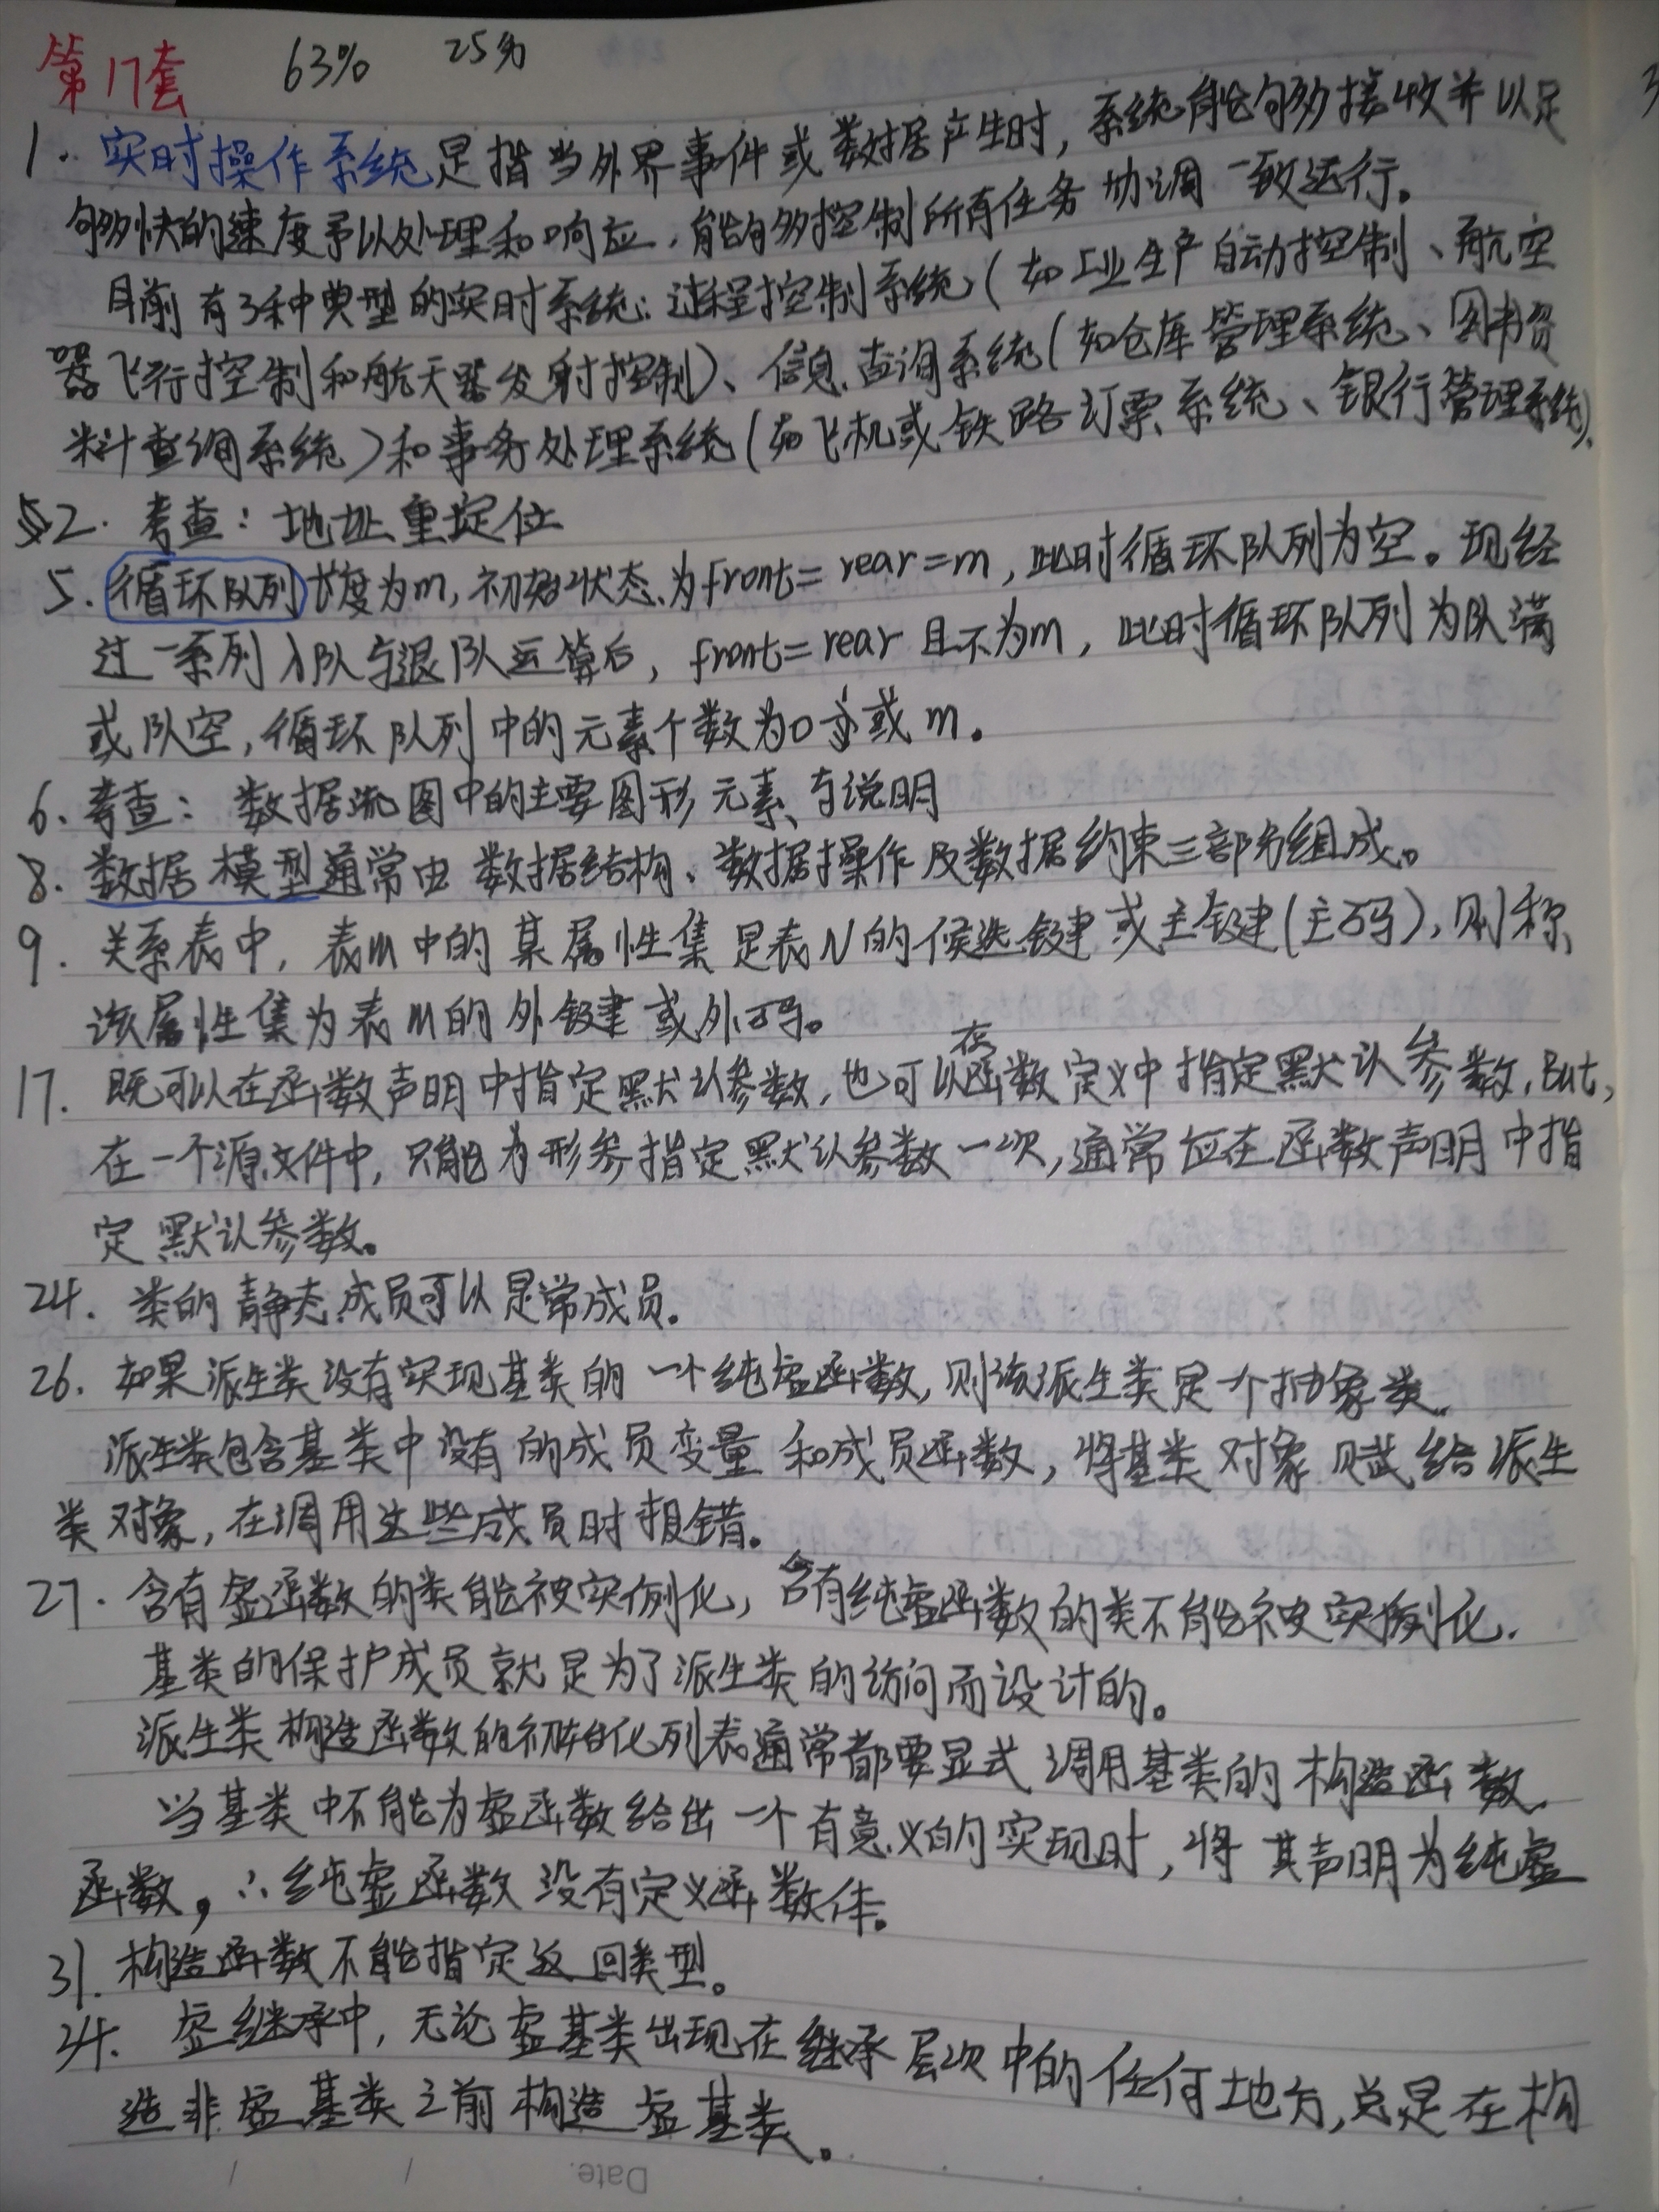 第17套 63% 25分
1. 实时操作系统是指当外界事件或数据产生时,系统能够接收并以足
够快的速度予以处理和响应,能够控制所有任务协调一致运行。
目前有3种典型的实时系统:过程控制系统(如工业生产自动控制、航空
器飞行控制和航天器发射控制)、信息查询系统(如仓库管理系统、图书资
料查询系统)和事务处理系统(如飞机或铁路订票系统、银行管理系统).
2. 考查:地址重定位
5. 循环队列长度为m,初始状态为front=rear=m,此时循环队列为空。现经
过一系列入队与退队运算后,front=rear且不为m,此时循环队列为队满
或队空,循环队列中的元素个数为0或m。
6. 考查:数据流图中的主要图形元素与说明
8. 数据模型通常由数据结构、数据操作及数据约束三部分组成。
9. 关系表中,表M中的某属性集是表N的候选键或主键(主码),则称
该属性集为表M的外键或外码。
17. 既可以在函数声明中指定默认参数,也可以在函数定义中指定默认参数,But,
在一个源文件中,只能为形参指定默认参数一次,通常应在函数声明中指
定默认参数。
24. 类的静态成员可以是常成员.
26. 如果派生类没有实现基类的一个纯虚函数,则该派生类是个抽象类.
派生类包含基类中没有的成员变量和成员函数,将基类对象赋给派生
类对象,在调用这些成员时报错。
27. 含有虚函数的类能被实例化,含有纯虚函数的类不能被实例化.
基类的保护成员就是为了派生类的访问而设计的。
派生类构造函数的初始化列表通常都要显式调用基类的构造函数.
当基类中不能为虚函数给出一个有意义的实现时,将其声明为纯虚
函数,∴纯虚函数没有定义函数体。
31. 构造函数不能指定返回类型。
34. 虚继承中,无论虚基类出现在继承层次中的任何地方,总是在构
造非虚基类之前构造虚基类。
Date.